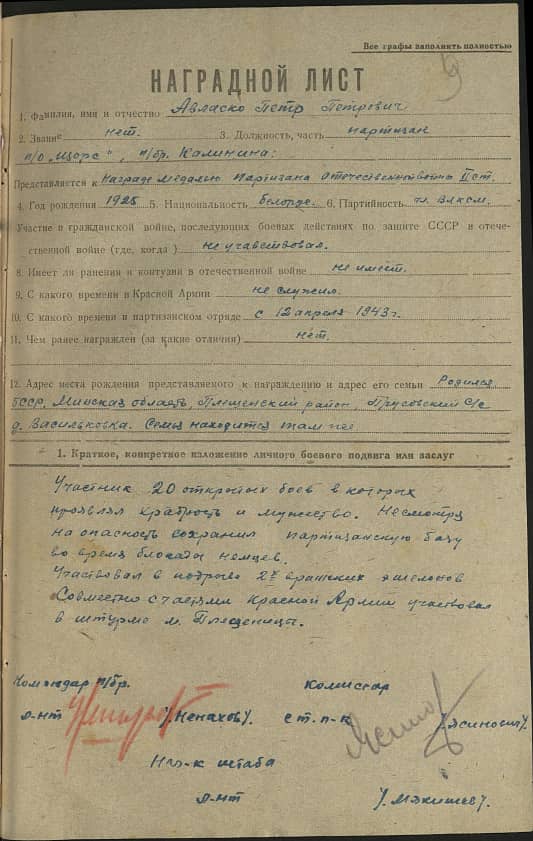 Все графы заполнять полностью
9
НАГРАДНОЙ ЛИСТ
1. Фамилия, имя и отчество Авласко Петр Петрович
2. Звание нет. 3. Должность, часть партизан
п/о "Щорс", п/бр. Калинина:
Представляется к награде медалью Партизана отечественной войны II ст.
4. Год рождения 1925 5. Национальность белорус. 6. Партийность чл. ВЛКСМ.
Участие в гражданской войне, последующих боевых действиях по защите СССР и отече-
ственной войне (где, когда) не учавствовал.
8. Имеет ли ранения и контузии в отечественной войне не имеет.
9. С какого времени в Красной Армии не служил.
10. С какого времени в партизанском отряде с 12 апреля 1943 г.
11. Чем ранее награжден (за какие отличия) нет.
12. Адрес места рождения представляемого к награждению и адрес его семьи Родился
БССР, Минская область, Плещенский район, Прусовский С/с
д. Васильковка. Семья находится там же
1. Краткое, конкретное изложение личного боевого подвига или заслуг
Участник 20 открытых боев в которых
проявлял храбрость и мужество. Несмотря
на опасность сохранил партизанскую базу
во время блокады немцев.
Участвовал в подрыве 2х вражеских эшелонов
Совместно с частями Красной Армии участвовал
в штурме м. Плещеницы.
Командир п/бр. Комиссар
л-нт /Ненахов/. ст. п-к /Ясинович/.
Нач-к штаба
л-нт /Мякишев/.